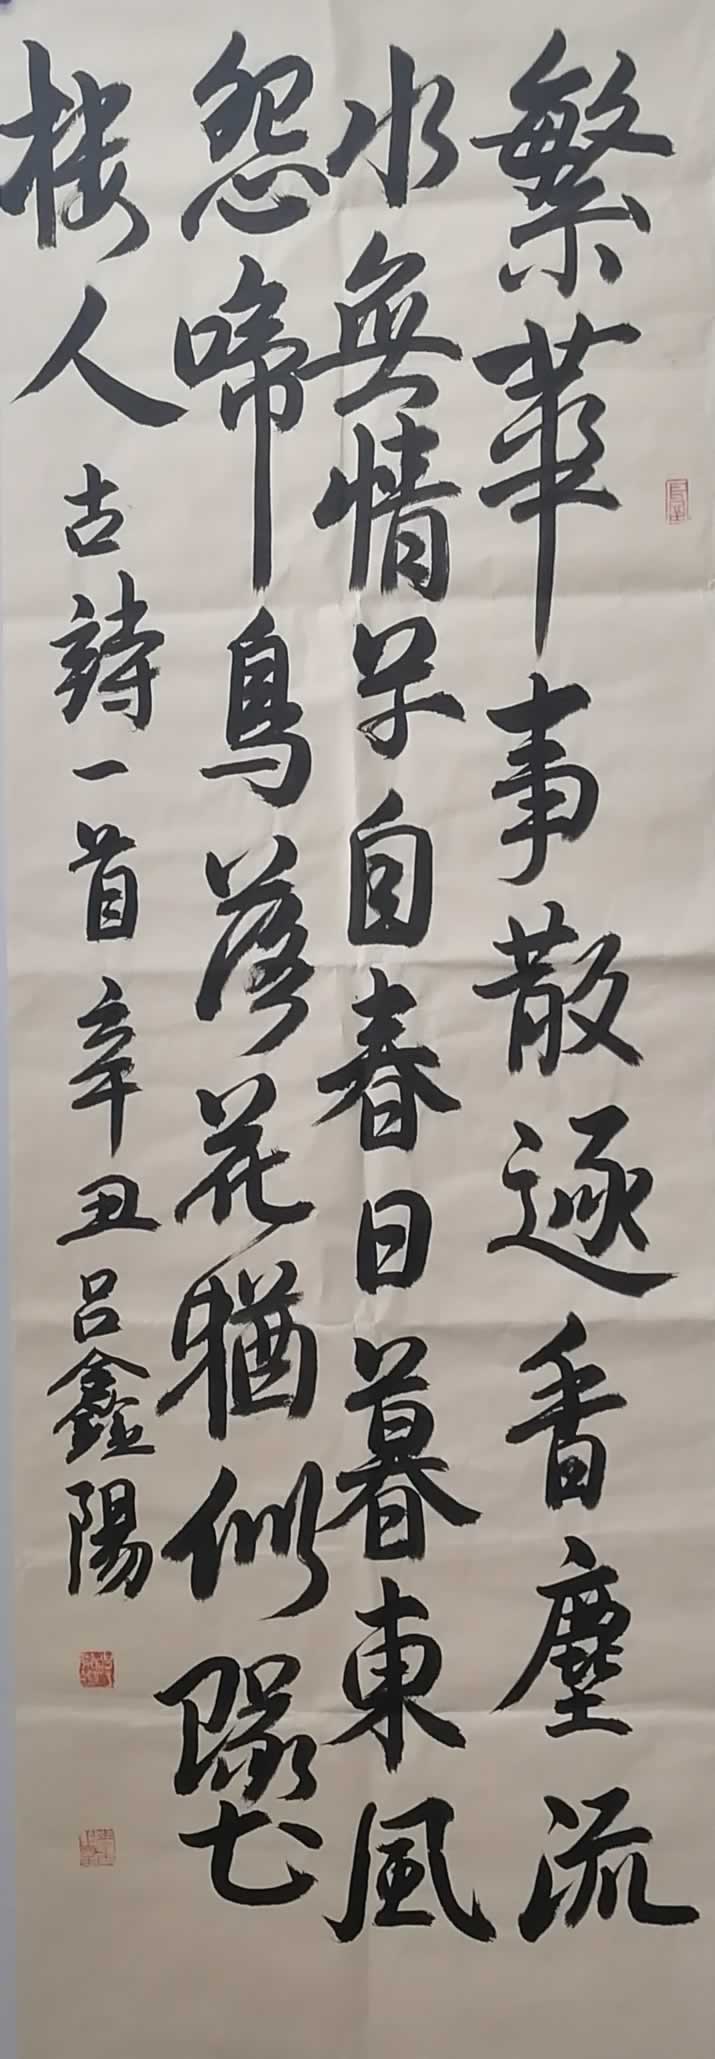 繁華事散逐香塵流
水無情草自春日暮東風
怨啼鳥落花猶似墜
楼人 古詩一首 辛丑 吕鑫陽